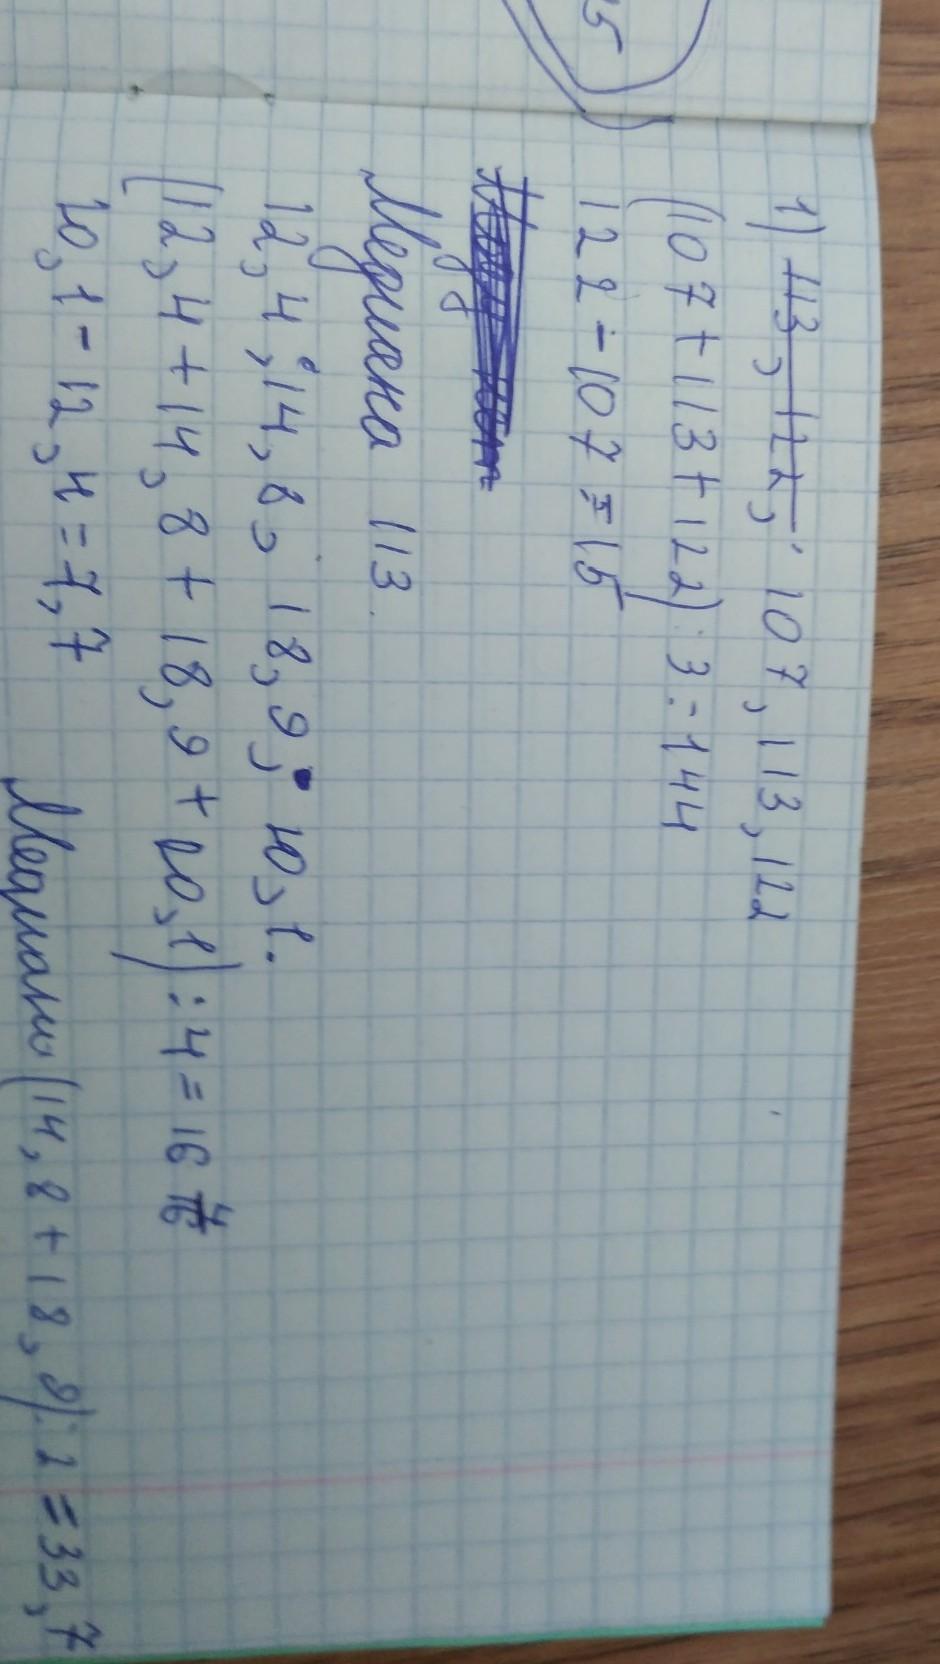 1) 113, 122, 107, 113, 122
(107+113+122):3=144
122-107=15
Медиана 113.
12,4; 14,8; 18,9; 20,1.
(12,4+14,8+18,9+20,1):4=16
20,1-12,4=7,7
Медиана (14,8+18,9):2=33,7
15